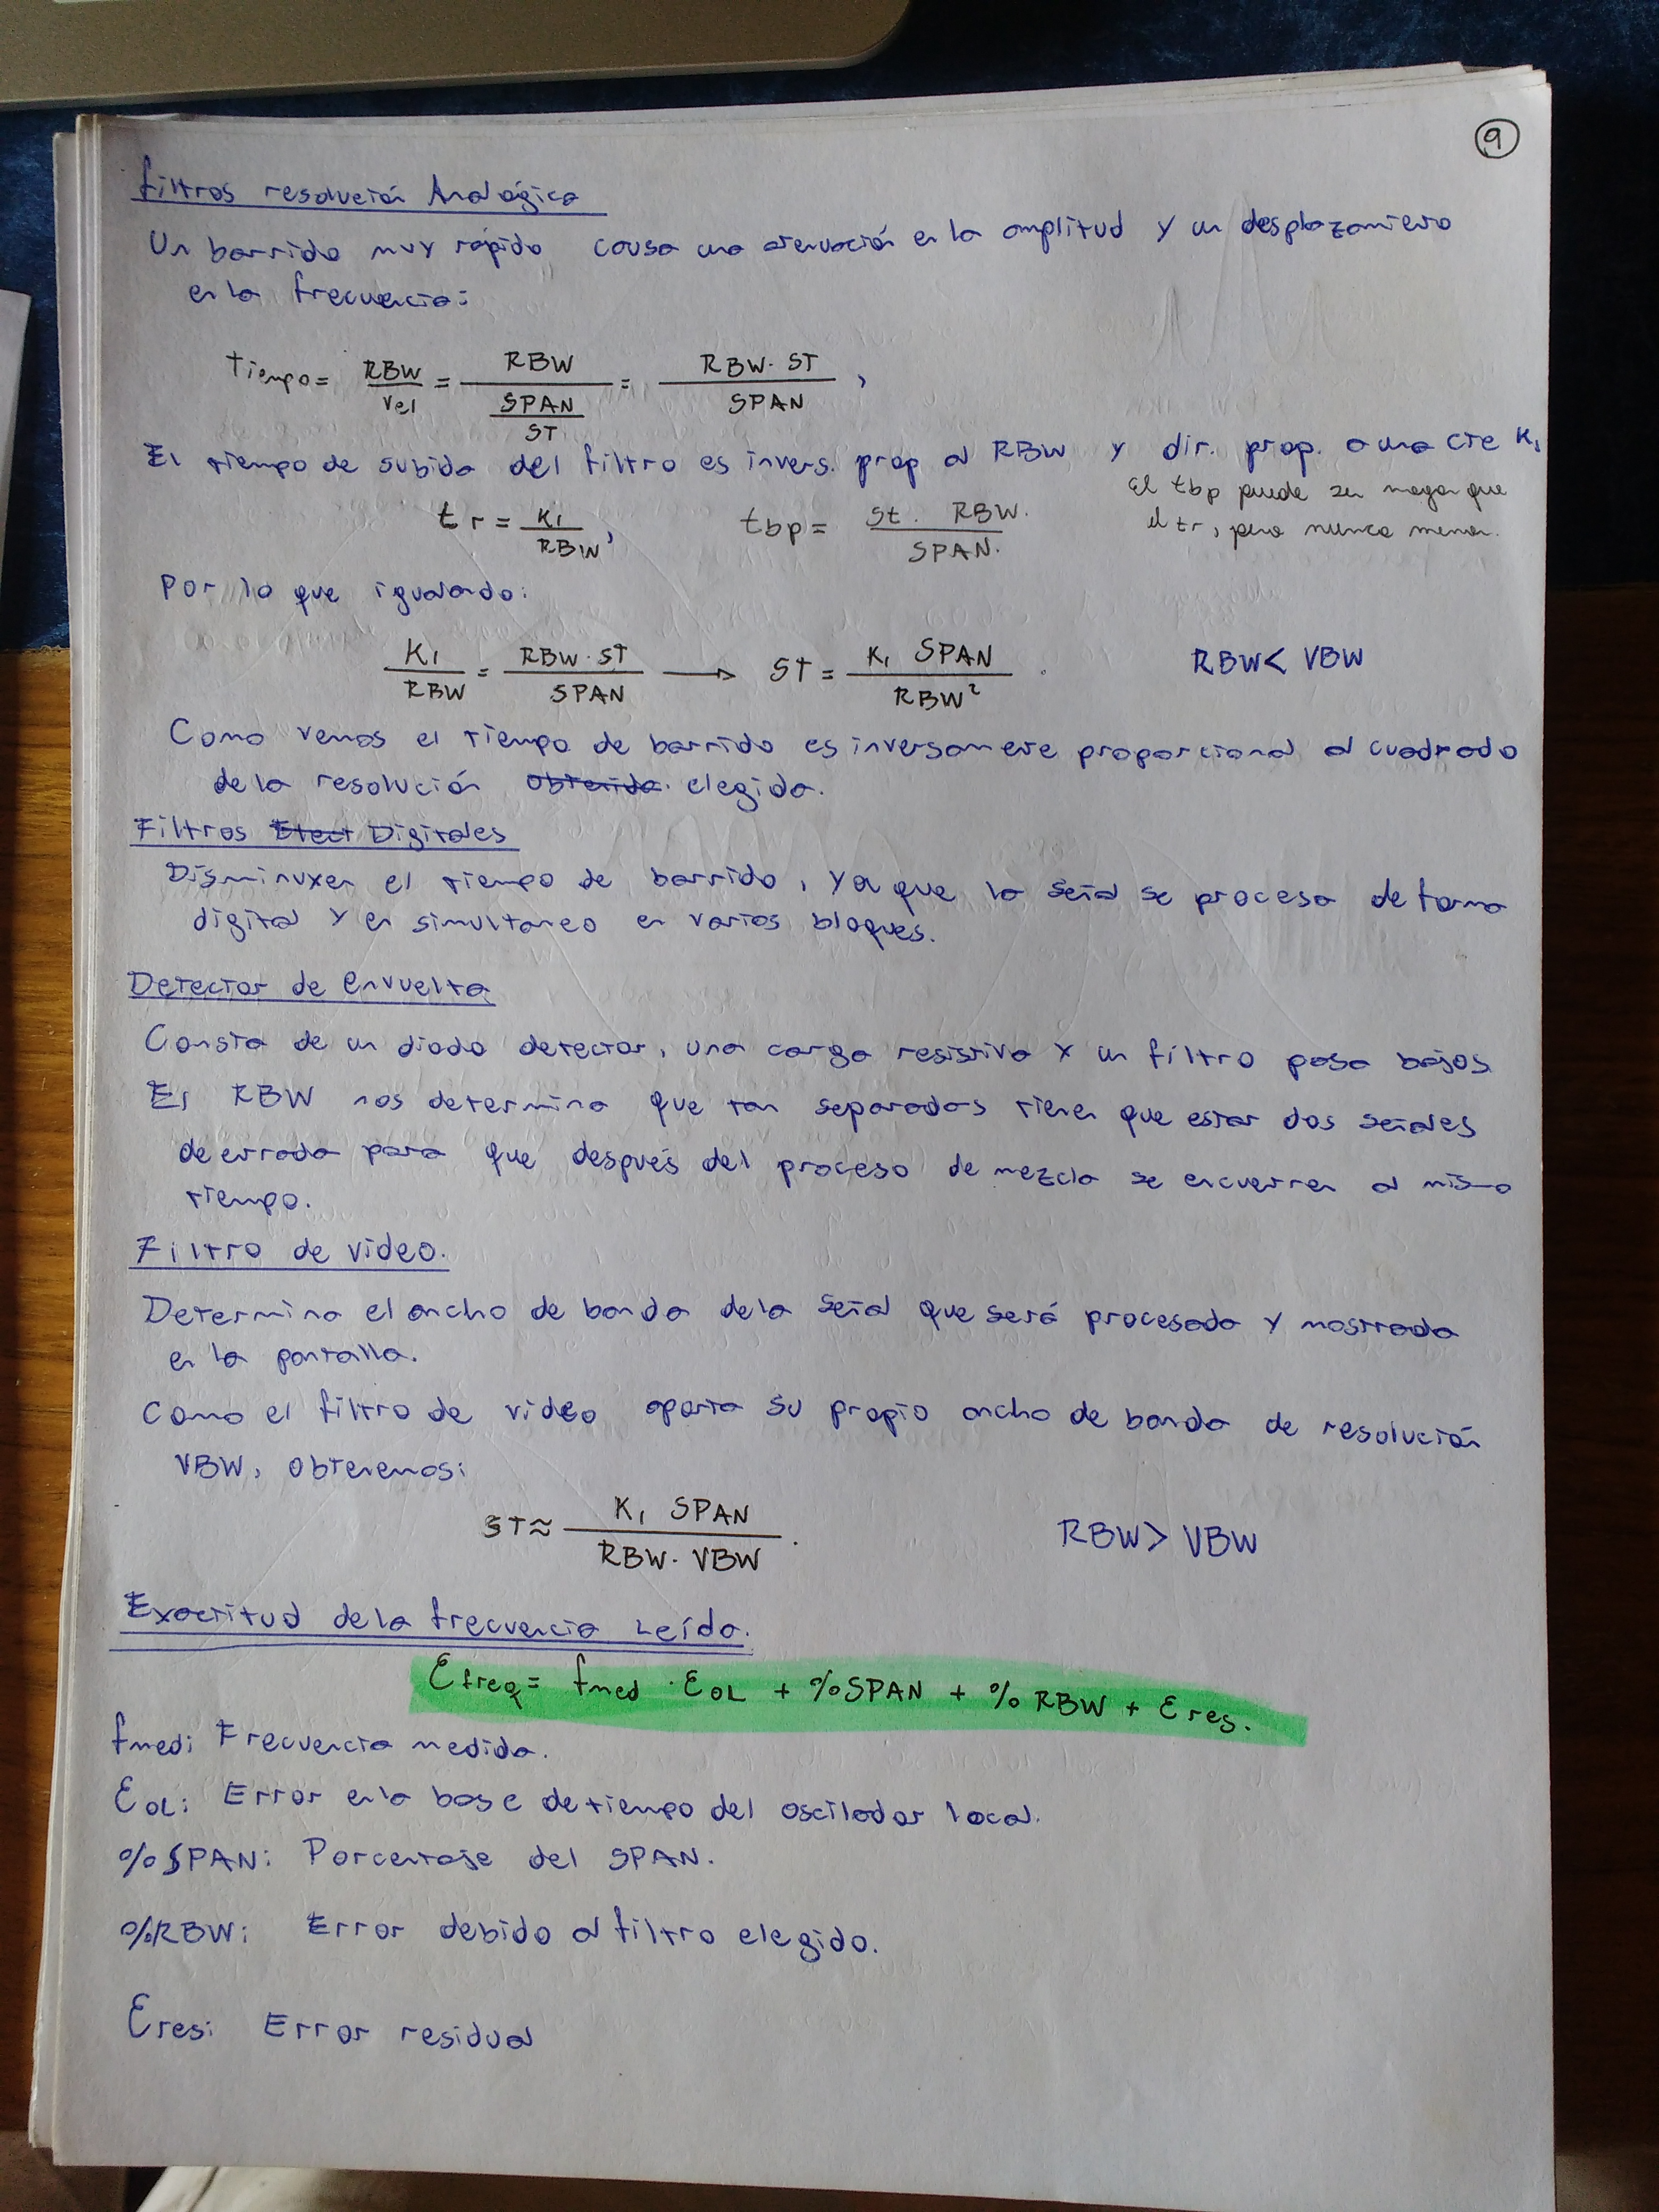 9
Filtros resolución Analógica
Un barrido muy rápido causa una atenuación en la amplitud y un desplazamiento
en la frecuencia:
Tiempo = RBW / vel = RBW / (SPAN / ST) = RBW · ST / SPAN ,
El tiempo de subida del filtro es invers. prop al RBW y dir. prop. a una cte K1
El tbp puede ser mayor que
el tr, pero nunca menor.
tr = K1 / RBW , tbp = St · RBW. / SPAN.
Por lo que igualando:
K1 / RBW = RBW · ST / SPAN → ST = K1 SPAN / RBW² . RBW < VBW
Como vemos el tiempo de barrido es inversamente proporcional al cuadrado
de la resolución obtenida. elegida.
Filtros Elect Digitales
Disminuyen el tiempo de barrido, ya que la señal se procesa de forma
digital y en simultaneo en varios bloques.
Detector de envuelta
Consta de un diodo detector, una carga resistiva y un filtro pasa bajos
El RBW nos determina que tan separadas tienen que estar dos señales
de entrada para que después del proceso de mezcla se encuentren al mismo
tiempo.
Filtro de video.
Determina el ancho de banda de la señal que será procesada y mostrada
en la pantalla.
Como el filtro de video aporta su propio ancho de banda de resolución
VBW, obtenemos:
ST ≈ K1 SPAN / RBW · VBW . RBW > VBW
Exactitud de la frecuencia Leída.
Ɛfreq = fmed · ƐOL + %SPAN + %RBW + Ɛres.
fmed: Frecuencia medida.
ƐOL: Error en la base de tiempo del oscilador local.
%SPAN: Porcentaje del SPAN.
%RBW: Error debido al filtro elegido.
Ɛres: Error residual